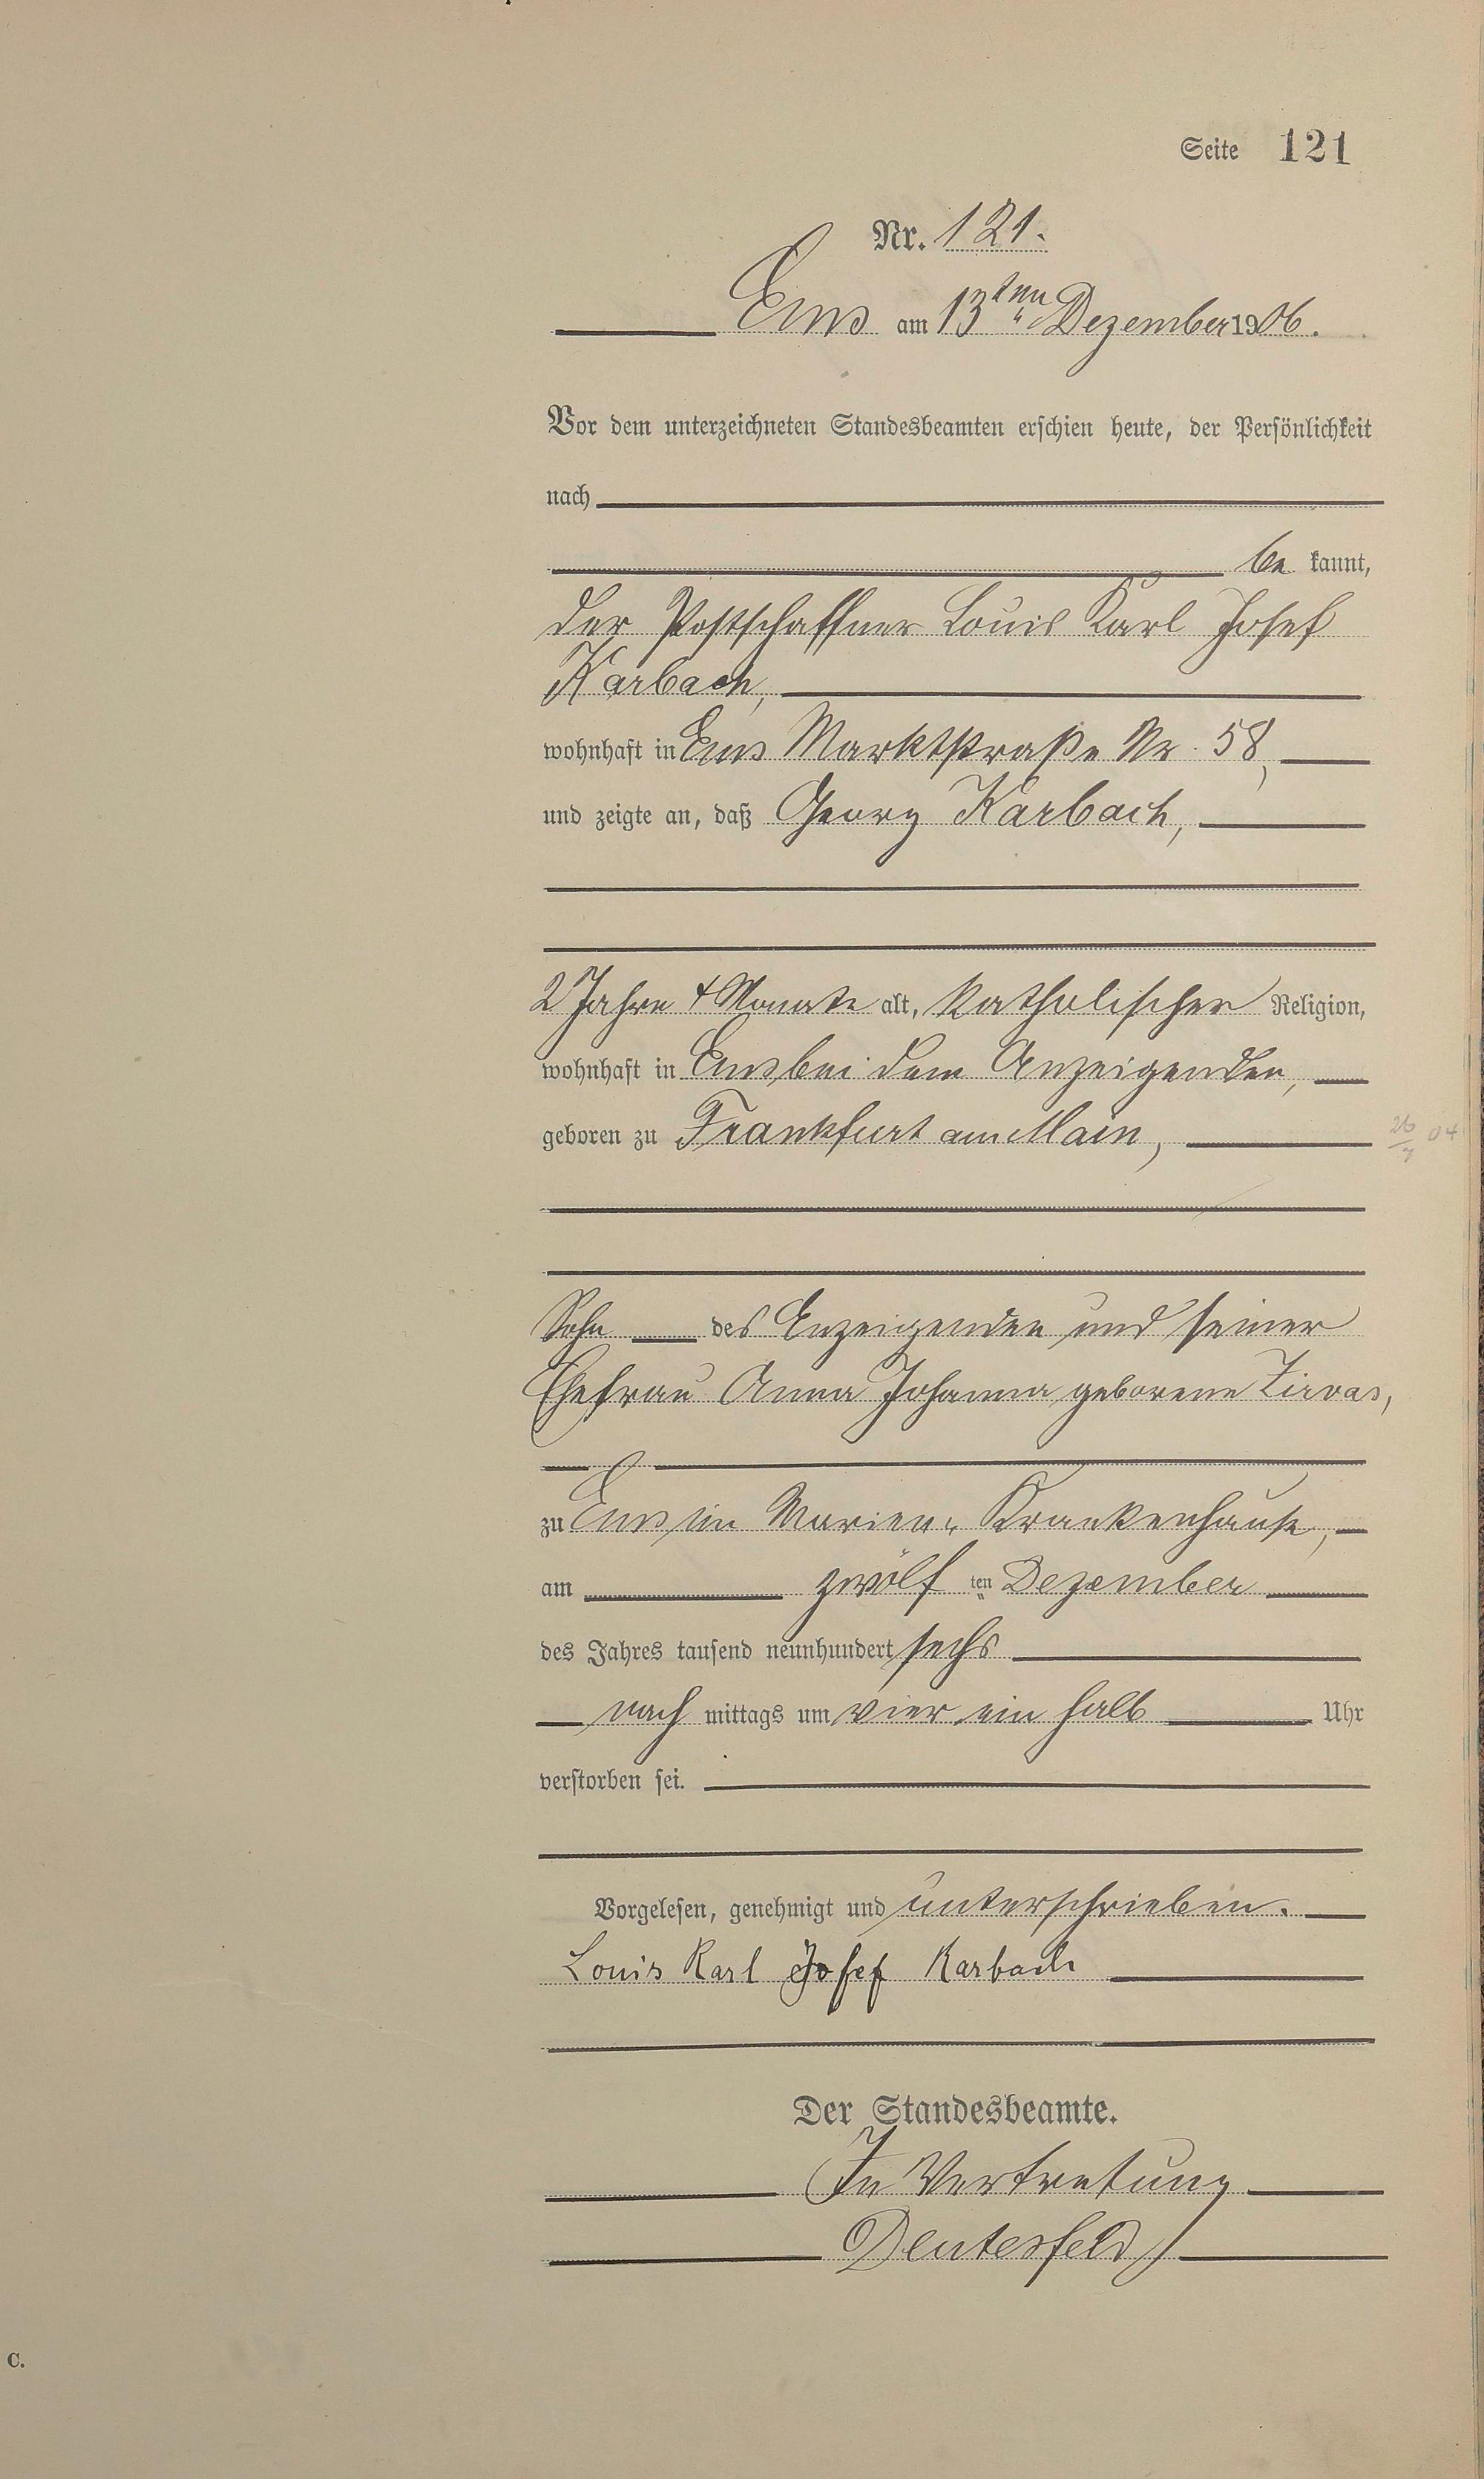 Seite 121
Nr. 121.
Ems am 13ten Dezember 1906.
Vor dem unterzeichneten Standesbeamten erschien heute, der Persönlichkeit
nach
be kannt,
der Postschaffner Louis Karl Josef
Karbach,
wohnhaft in Ems Marktstraße Nr. 58,
und zeigte an, daß Georg Karbach,
2 Jahre 4 Monate alt, katholischer Religion,
wohnhaft in Ems bei dem Anzeigenden,
geboren zu Frankfurt am Main,
26 04
Sohn des Anzeigenden und seiner
Ehefrau Anna Johanna geborene Zirvas,
zu Ems im Marien-Krankenhause,
am zwölf ten Dezember
des Jahres tausend neunhundert sechs
nach mittags um vier ein halb Uhr
verstorben sei.
Vorgelesen, genehmigt und unterschrieben.
Louis Karl Josef Karbach
Der Standesbeamte.
In Vertretung
Deutesfeld
C.